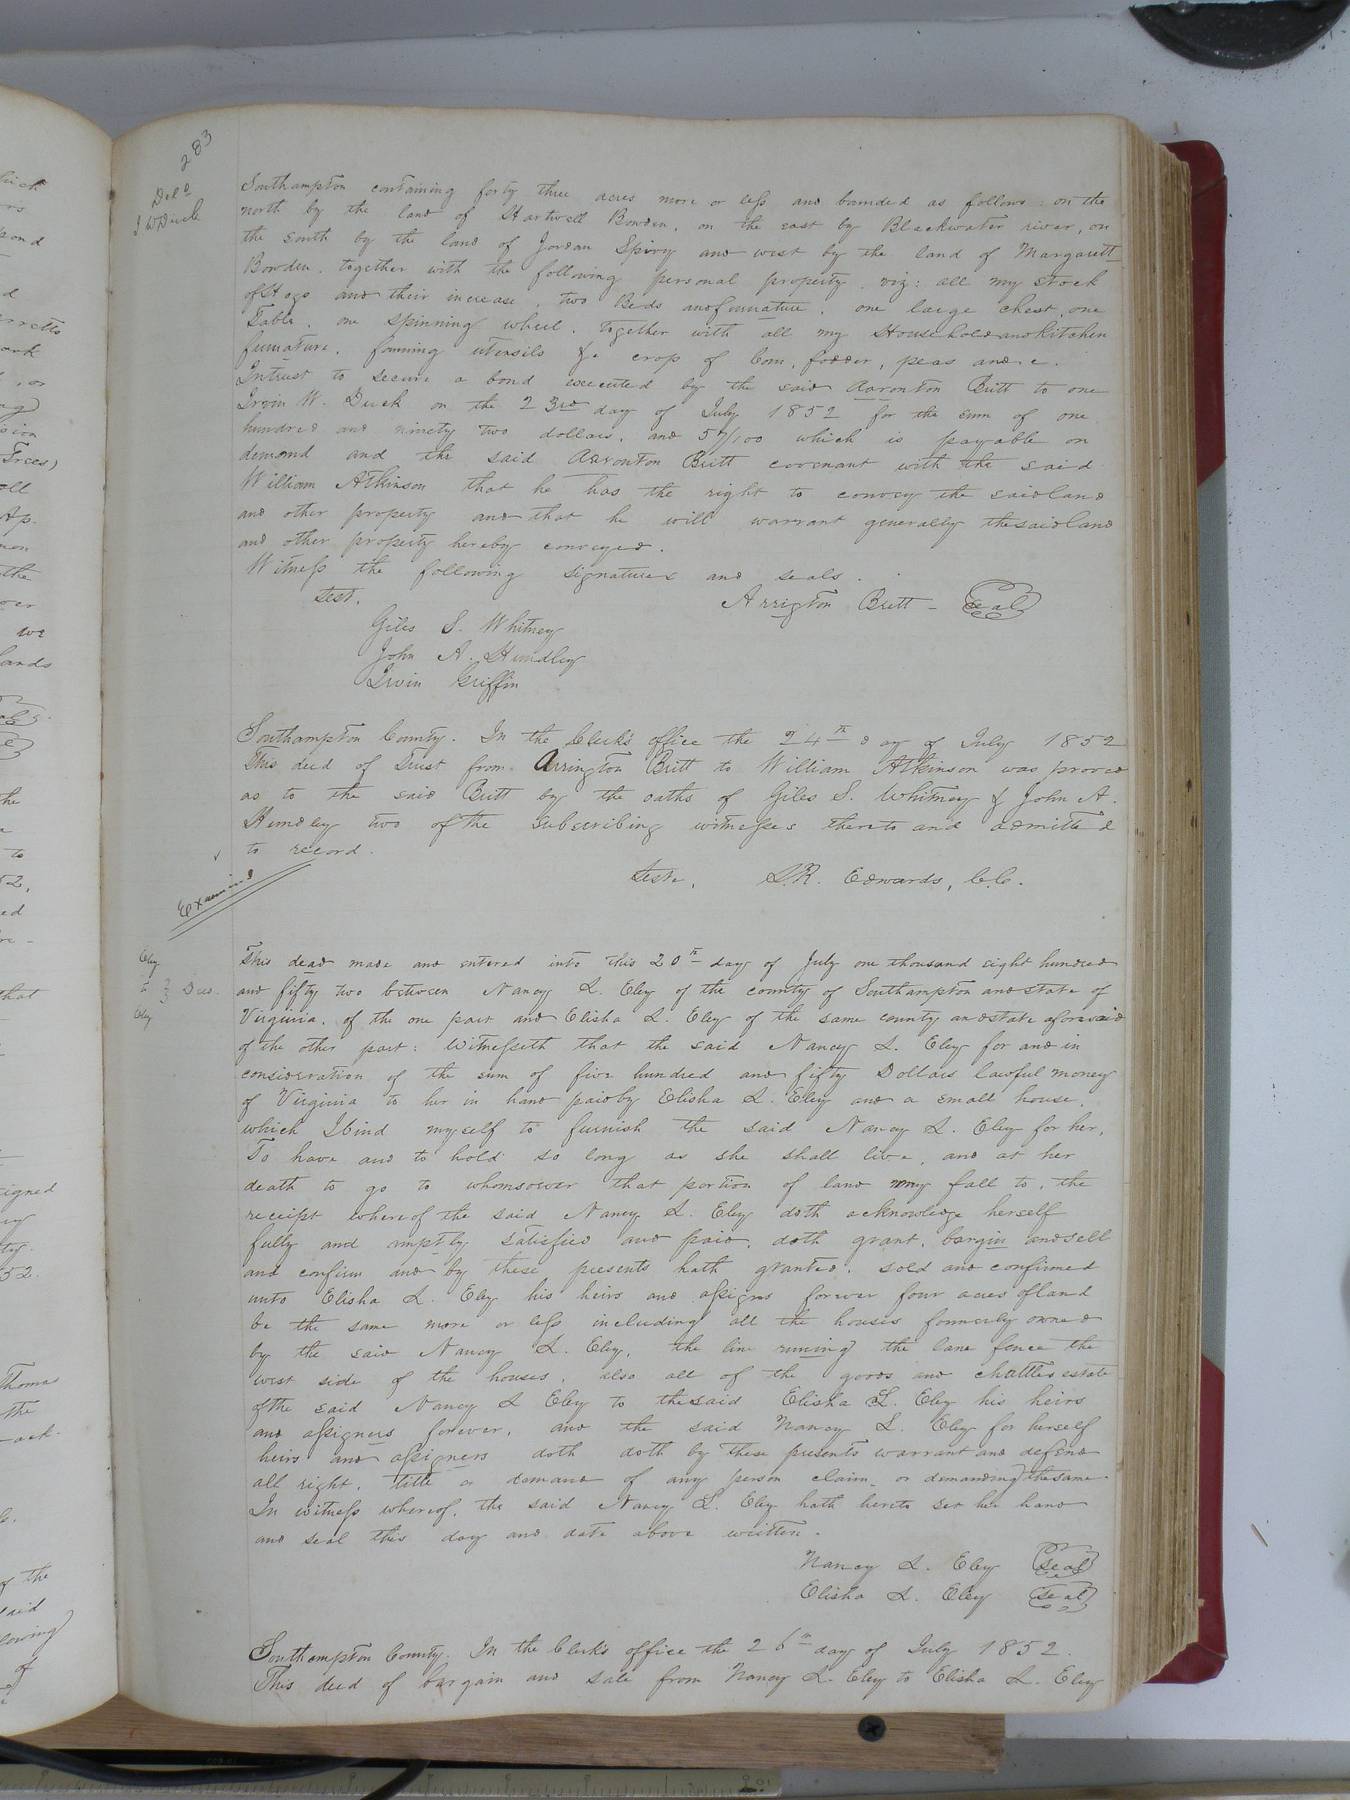 283
Deld
I W Duck
Southampton containing forty three acres more or less and bounded as follows: on the
north by the land of Hartwell Bowden, on the east by Blackwater river, on
the south by the land of Jordan Spivy and west by the land of Margarett
Bowden. together with the following personal property. viz: all my stock
of Hogs and their increase, two Beds and funuture, one large chest, one
Table, one spinning wheel. together with all my Household and Kitchen
funuture, famming utensils &c crop of Corn, fodder, peas and c.
Intrust to secure a bond executed by the said Aaronton Britt to one
Irvin W. Duck on the 23rd day of July 1852 for the sum of one
hundred and ninety two dollars, and 57/100 which is payable on
demand and the said Aaronton Britt covenant with the said
William Atkinson that he has the right to convey the said land
and other property and that he will warrant generally the said land
and other property hereby conveyed.
Witness the following signatures and seals.
Test.
Arrigton Britt - Seal
Giles S. Whitney
John A. Hundley
Irvin Griffin
Southampton County. In the Clerk's office the 24th day of July 1852
This deed of Trust from Arrington Britt to William Atkinson was proved
as to the said Britt by the oaths of Giles S. Whitney & John A.
Hundley two of the subscribing witnesses thereto and admitted
to record.
Teste, L.R. Edwards, C.C.
Examined
Eley
to } Deed.
Eley
This dead made and entered into this 20th day of July one thousand eight hundred
and fifty two between Nancy L. Eley of the county of Southampton and state of
Virginia, of the one part and Elisha L. Eley of the same county and state aforesaid
of the other part: Witnesseth that the said Nancy L. Eley for and in
consideration of the sum of five hundred and fifty Dollars lawful money
of Virginia to her in hand paid by Elisha L. Eley and a small house,
which I bind myself to furnish the said Nancy L. Eley for her,
To have and to hold so long as she shall live, and at her
death to go to whomsoever that portion of land may fall to, the
receipt whereof the said Nancy L. Eley doth acknowledge herself
fully and amptly satisfied and paid, doth grant, bargin and sell
and confirm and by these presents hath granted, sold and confirmed
unto Elisha L. Eley his heirs and assigns forever four acres of land
be the same more or less including all the houses formerly owned
by the said Nancy L. Eley, the line runing the lane fence the
west side of the houses, also all of the goods and chattles estate
of the said Nancy L Eley to the said Elisha L. Eley his heirs
and assigners forever, and the said Nancy L. Eley for herself
heirs and assigners doth doth by these presents warrant and defend
all right, title or demand of any person claim or demanding the same.
In witness whereof, the said Nancy L. Eley hath hereto set her hand
and seal this day and date above written.
Nancy L. Eley Seal
Elisha L. Eley Seal
Southampton County. In the Clerk's office the 26th day of July 1852.
This deed of bargain and sale from Nancy L. Eley to Elisha L. Eley